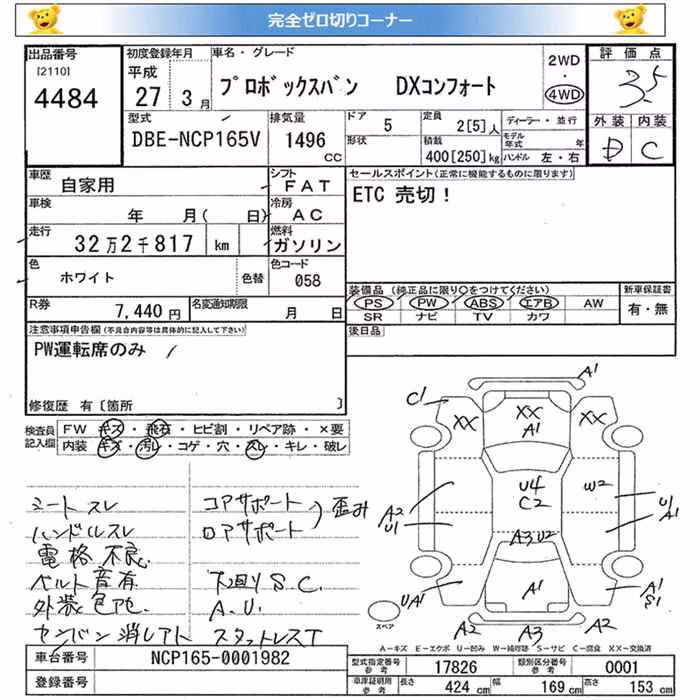 完全ゼロ切りコーナー
出品番号
[2110]
4484
初度登録年月
平成
27 3月
車名・グレード
プロボックスバン DXコンフォート
2WD
・
4WD
評価点
3.5
外装 内装
D C
型式
DBE-NCP165V
排気量
1496
CC
ドア 5
形状
定員 2[5]人
積載 400[250]kg
ディーラー・並行
モデル年式 年
ハンドル 左・右
車歴
自家用
シフト
FAT
車検
年 月( 日)
冷房
AC
走行
32万2千817 km
燃料
ガソリン
色
ホワイト
色替
色コード
058
R券
7,440円
名変通知期限
月 日
セールスポイント(正常に機能するものに限ります)
ETC 売切!
装備品(純正品に限り○をつけてください)
PS PW ABS エアB AW
SR ナビ TV カワ
新車保証書
有・無
後日品
注意事項申告欄(不具合内容等は具体的に記入して下さい)
PW運転席のみ
修復歴 有〔箇所 〕
検査員記入欄
FW キズ・飛石・ヒビ割・リペア跡・×要
内装 キズ・汚レ・コゲ・穴・スレ・キレ・破レ
シートスレ
ハンドルスレ
電格不良
ベルト音有
外装色アセ
センバン消しアト
コアサポート
ロアサポート
歪み
下廻りS.C.
A.U.
スタットレスT
A1
C1
XX
XX
A1
XX
A2
U1
U4
C2
W2
U1
A1
A3 U2
UA1
A1
A1
S1
A2
A3
A2
スペア
A−キズ E−エクボ U−凹み W−補修跡 S−サビ C−腐食 XX−交換済
車台番号
NCP165-0001982
登録番号
型式指定番号
参考
17826
類別区分番号
参考
0001
車庫証明用
参考
長さ 424 cm
幅 169 cm
高さ 153 cm